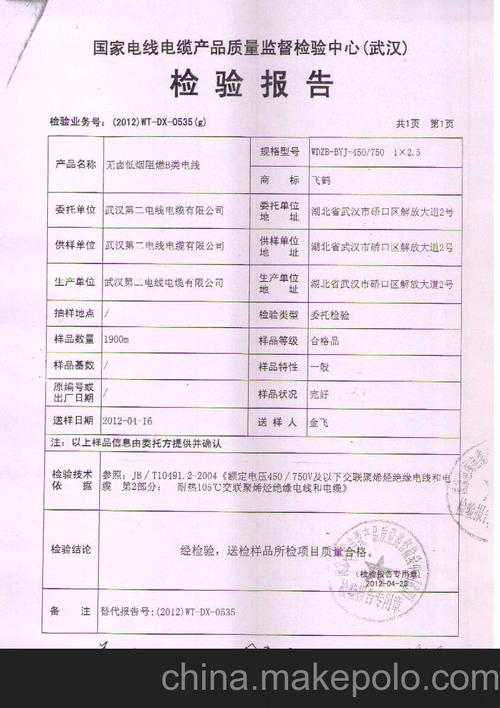 国家电线电缆产品质量监督检验中心(武汉)
检验报告
检验业务号：(2012)WT-DX-0535(g) 共1页 第1页
产品名称 无卤低烟阻燃B类电线 规格型号 WDZB-BYJ-450/750 1×2.5
商标 飞鹤
委托单位 武汉第二电线电缆有限公司 委托单位地址 湖北省武汉市硚口区解放大道2号
供样单位 武汉第二电线电缆有限公司 供样单位地址 湖北省武汉市硚口区解放大道2号
生产单位 武汉第二电线电缆有限公司 生产单位地址 湖北省武汉市硚口区解放大道2号
抽样地点 / 检验类型 委托检验
样品数量 1900m 样品等级 合格品
样品基数 / 样品特性 一般
原编号或出厂日期 / 样品状况 完好
送样日期 2012-04-16 送样人 金飞
注：以上样品信息由委托方提供并确认
检验技术依据 参照：JB/T10491.2-2004《额定电压450/750V及以下交联聚烯烃绝缘电线和电
缆 第2部分： 耐热105℃交联聚烯烃绝缘电线和电缆》
检验结论 经检验，送检样品所检项目质量合格。
(检验报告专用章)
2012-04-25
备注 替代报告号:(2012)WT-DX-0535
检验报告专用章
china.makepolo.com